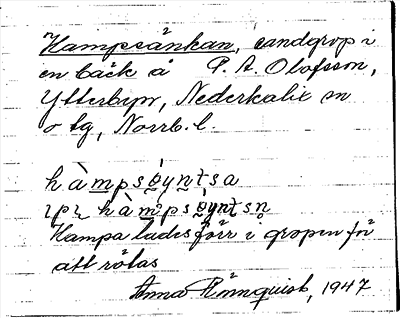 Hampsänkan, sandgrop i
en bäck å P. A. Olofsson,
Ytterbyn, Nederkalix sn
o tg, Norrb. l.
hàmpsøyntsa
ɩpɩ hàmpsøyntsn
Hampa lades förr i gropen för
att rötas
Anna Rönnquist, 1947